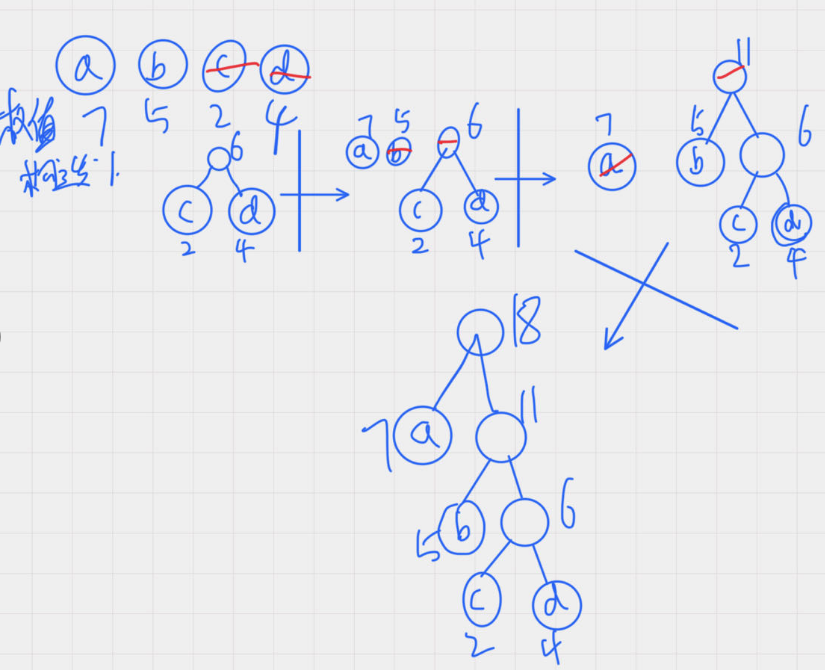 a b c d
权值 7 5 2 4
构造步
6
c d
2 4
7 5 6
a b
c d
2 4
7 11
a
5 6
b
c d
2 4
18
7 a 11
5 b 6
c d
2 4